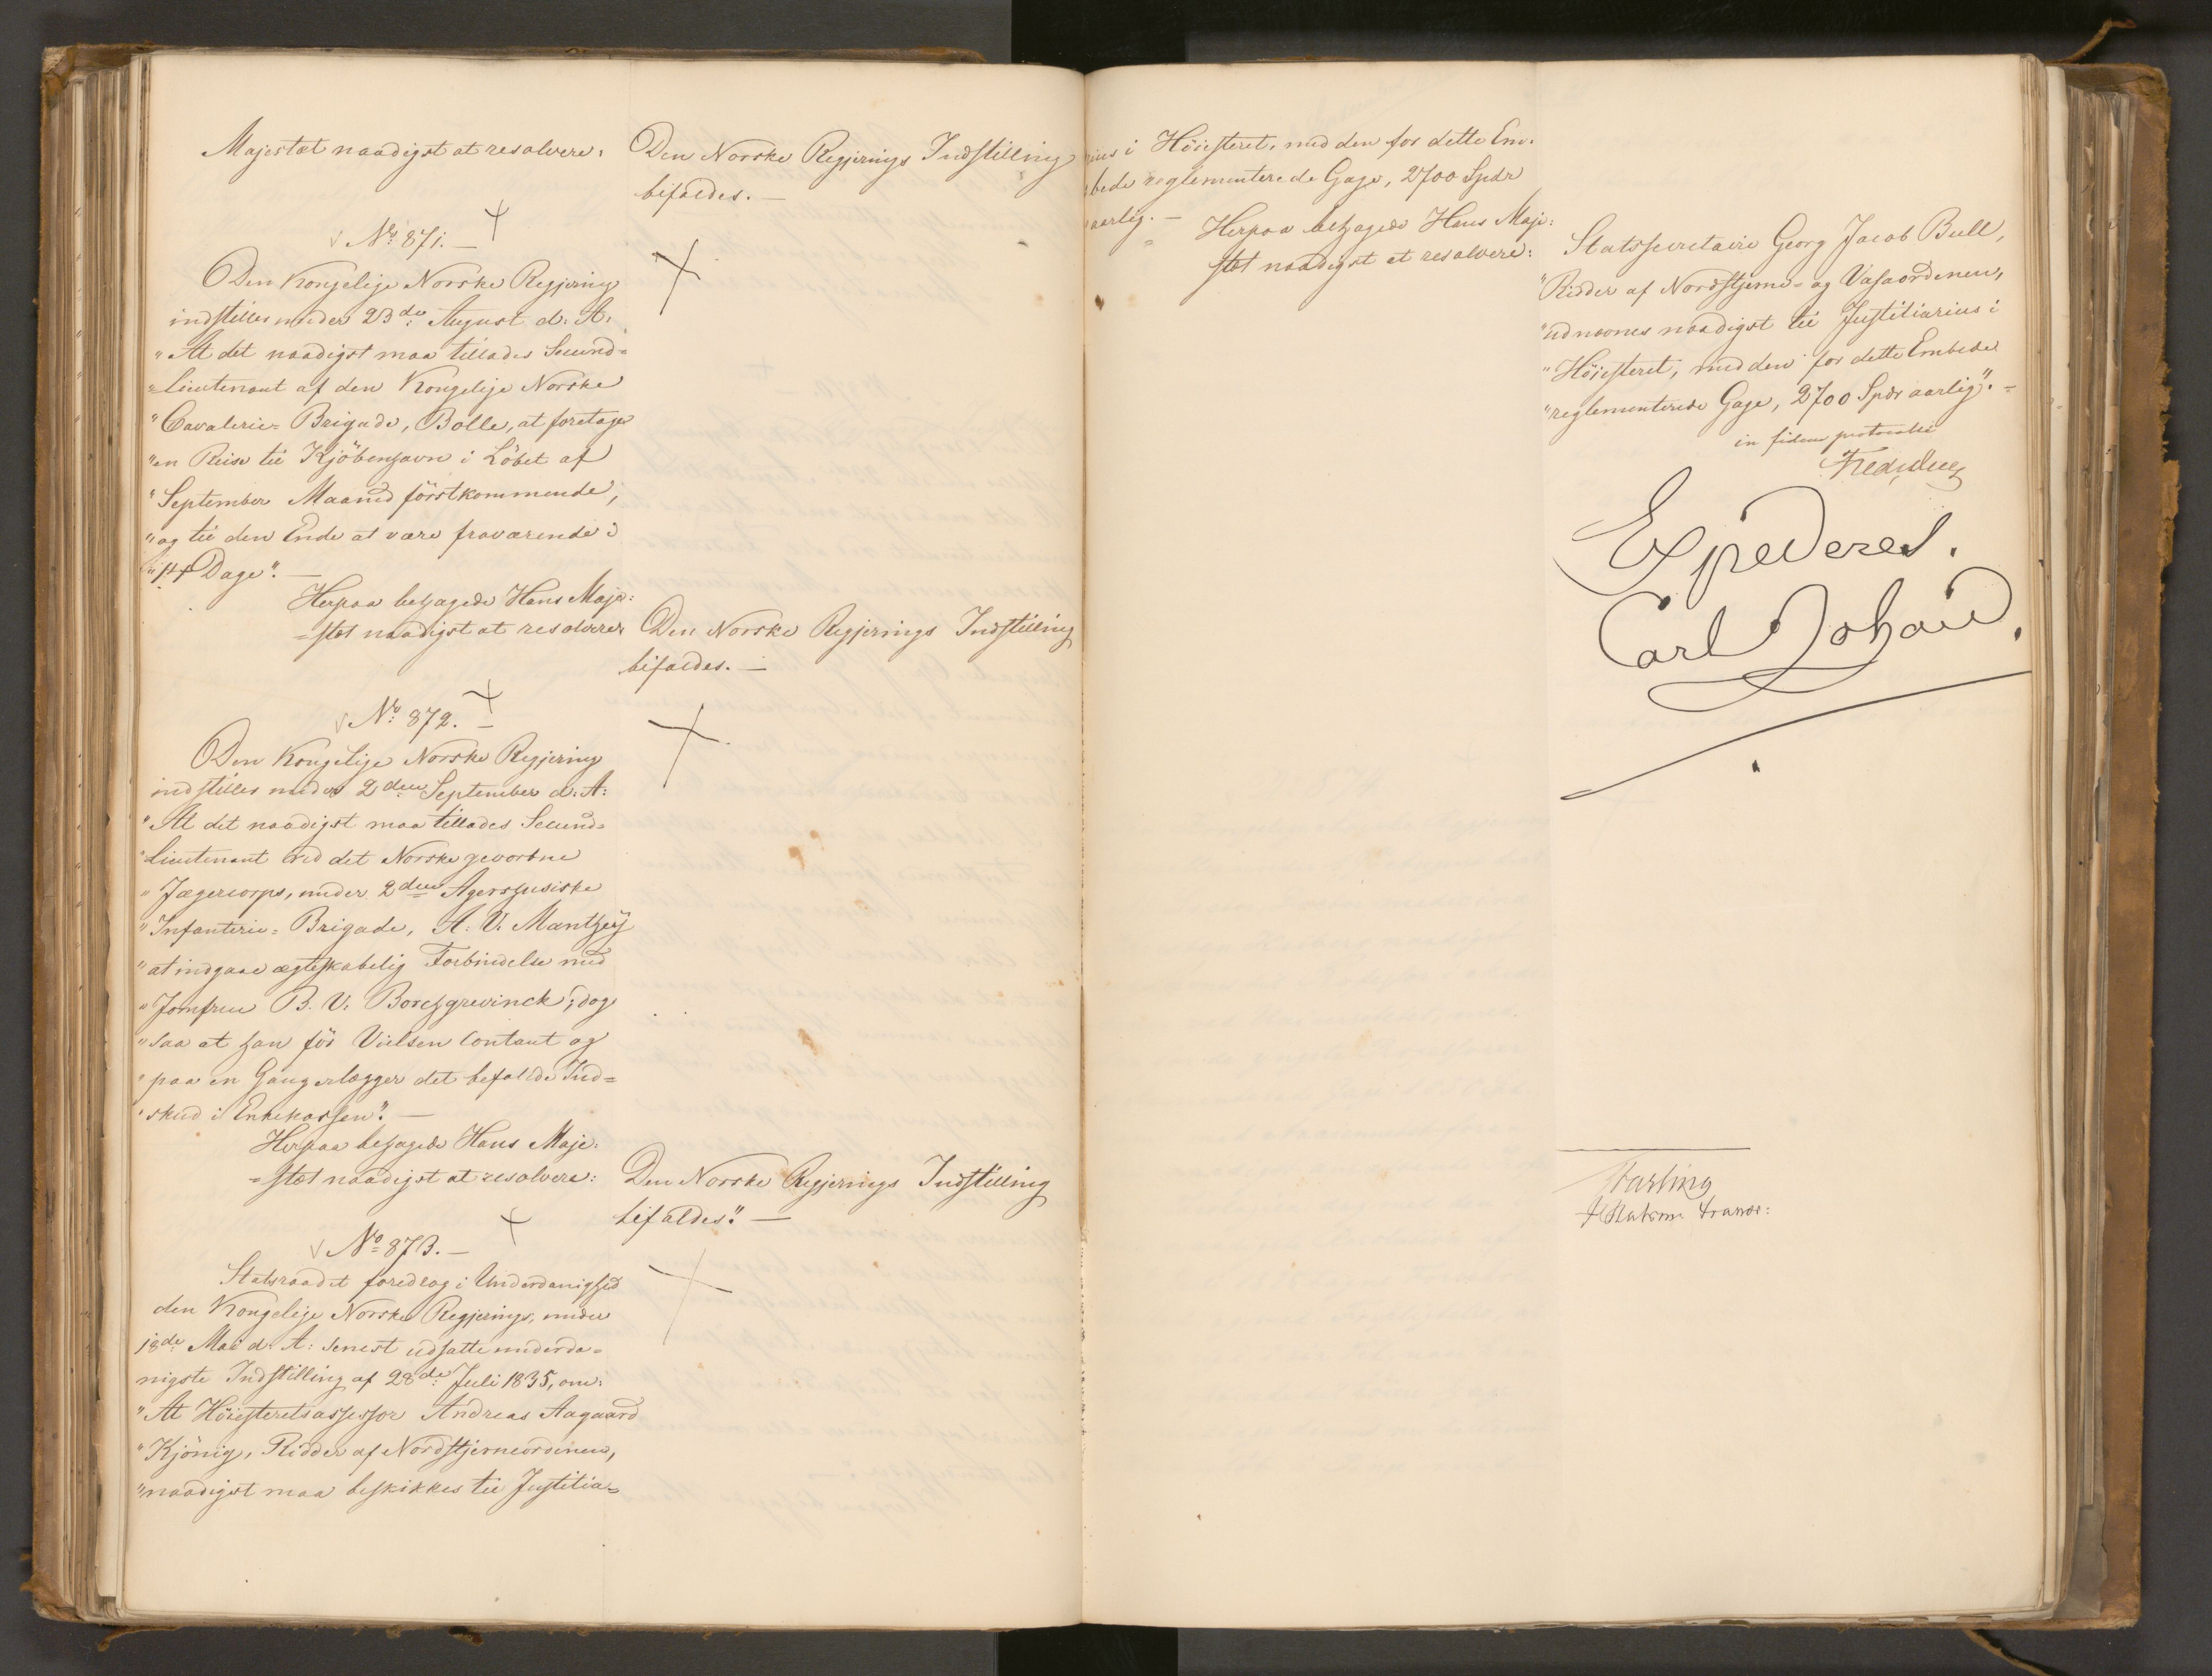 Majestæt naadigst at resolvere:
Den Norske Regjerings Indstilling
bifaldes. —
No. 871. —
Den Kongelige Norske Regjering
indstiller under 23de August d: A:
"At det naadigst maa tillades Secund-
"Lieutenant af den Kongelige Norske
"Cavalerie-Brigade, Bolle, at foretage
"en Reise til Kjöbenhavn i Löbet af
"September Maaned förstkommende,
"og til den Ende at være fraværende i
"14 Dage". —
Herpaa behagede Hans Maje-
-stæt naadigst at resolvere:
Den Norske Regjerings Indstilling
bifaldes. —
No. 872. —
Den Kongelige Norske Regjering
indstiller under 2den September d: A:
"At det naadigst maa tillades Secund-
"Lieutenant ved det Norske gevorbne
"Jægercorps, under 2den Agershusiske
"Infanterie-Brigade, A: V: Mantzey
"at indgaae ægteskabelig Forbindelse med
"Jomfrue B. V. Borchgrevinck; dog
"saa at han för Vielsen contant og
"paa en Gang erlægger det befalede Ind-
"skud i Enkekassen". —
Herpaa behagede Hans Maje-
-stæt naadigst at resolvere:
Den Norske Regjerings Indstilling
bifaldes." —
No. 873. —
Statsraadet foredrog i Underdanighed
den Kongelige Norske Regjerings, under
18de Mai d: A: senest udsatte underda-
nigste Indstilling af 28de Juli 1835, om:
"At Höiesteretsassessor Andreas Aagaard
"Kjönig, Ridder af Nordstjerneordenen,
"naadigst maa beskikkes til Justitia-
rius i Höiesteret, med den for dette Em-
bede reglementerede Gage, 2700 Spdr
aarlig. —
Herpaa behagede Hans Maje-
stæt naadigst at resolvere:
Statssecretaire Georg Jacob Bull,
"Ridder af Nordstjerne- og Vasaordenen,
"udnævnes naadigst til Justitiarius i
"Höiesteret, med den for dette Embede
"reglementerede Gage, 2700 Spdr aarlig". —
in fidem protocolli
Expederes.
Carl Johan